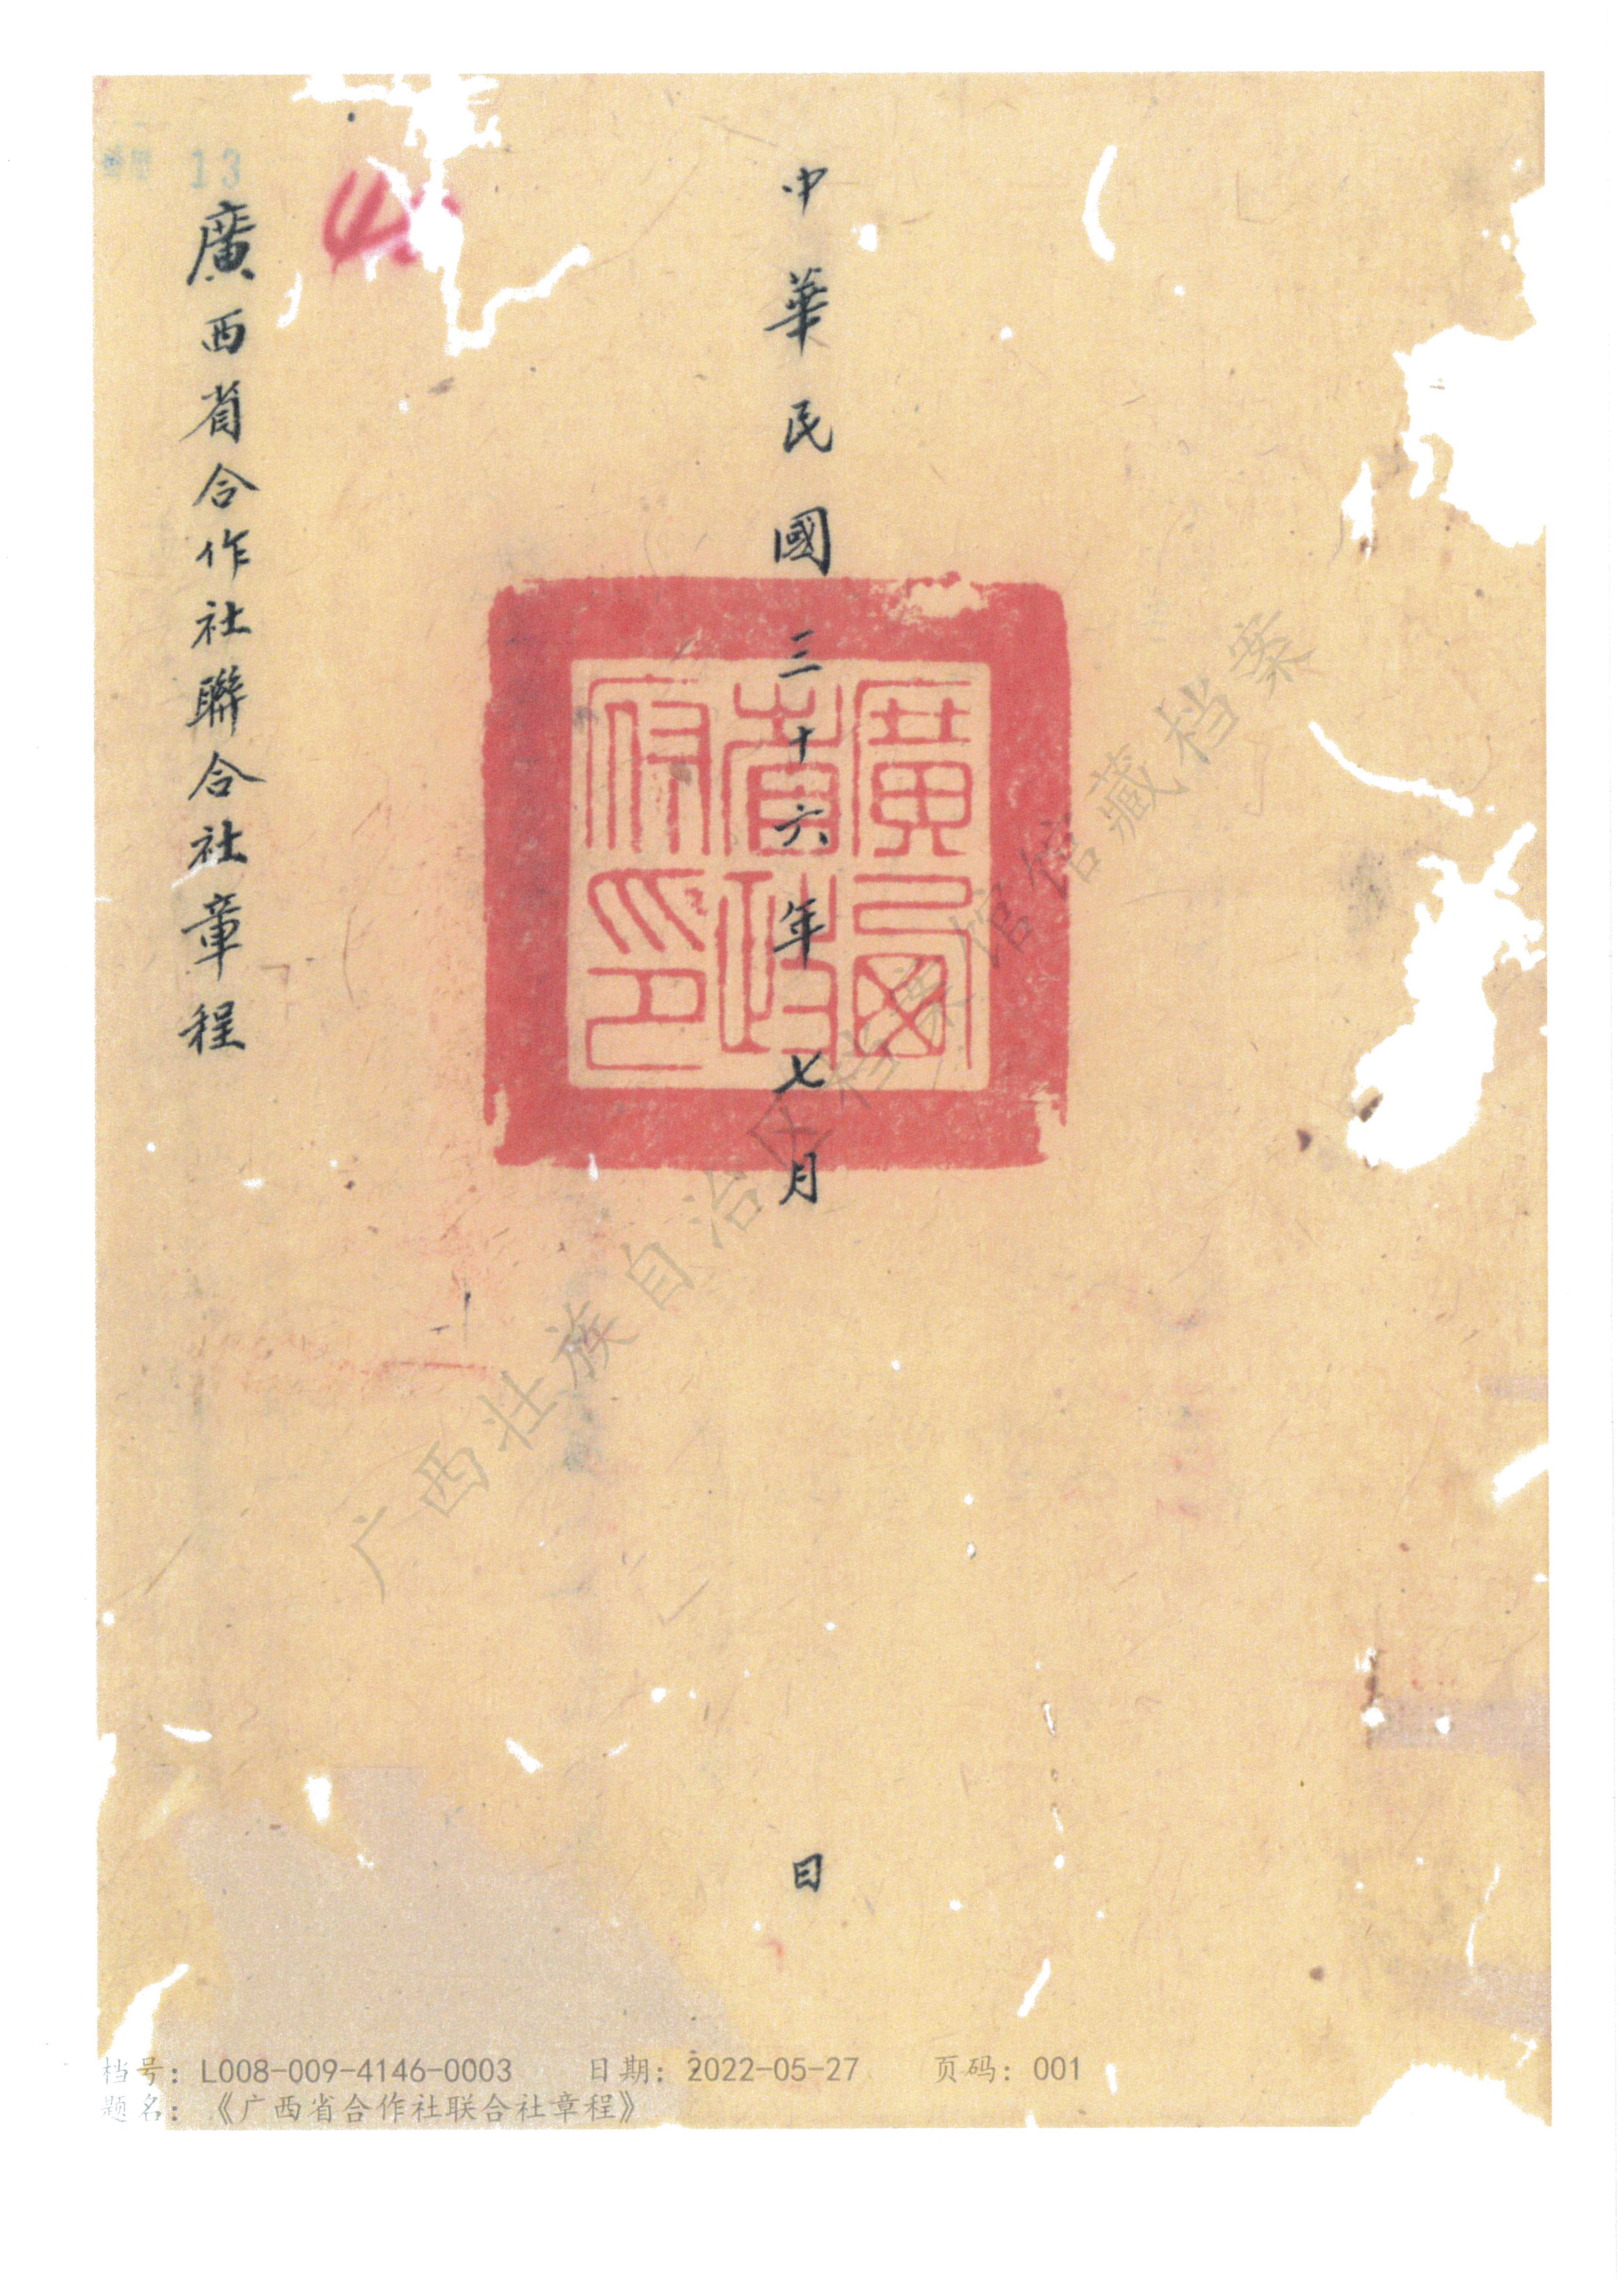 中華民國三十六年七月 日
廣西省合作社聯合社章程
13
廣西省政府印
广西壮族自治区档案馆馆藏档案
档号：L008-009-4146-0003 日期：2022-05-27 页码：001
题名：《广西省合作社联合社章程》